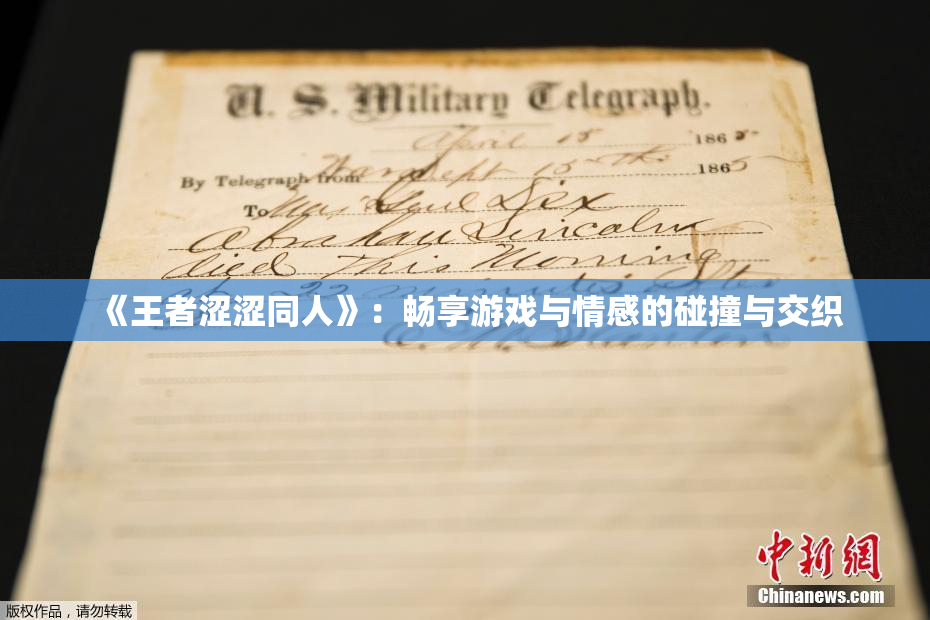 U. S. Military Telegraph.
April 15 1865
By Telegraph from War Dept 15th 1865
To Maj Genl Dix
Abraham Lincoln
died This Morning
at 22 minutes after
《王者涩涩同人》：畅享游戏与情感的碰撞与交织
E. M. Stanton
中新网
Chinanews.com
版权作品，请勿转载